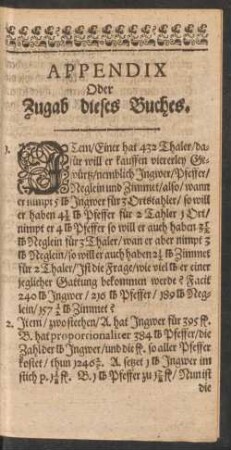 APPENDIX
Oder
Zugab dieses Buches.
1. ITem/Einer hat 432 Thaler/da-
für will er kauffen viererley Ge-
würtz/nemblich Ingwer/Pfeffer/
Neglein und Zimmet/also/wann
er nimpt 5 ℔ Ingwer für 3 Ortstahler/so will
er haben 4½ ℔ Pfeffer für 2 Tahler 1 Ort/
nimpt er 4 ℔ Pfeffer so will er auch haben
℔ Neglein für 3 Thaler/wan er aber nimpt 3
℔ Neglein/so will er auch haben 2½ ℔ Zimmet
für 2 Thaler/Ist die Frage/wie viel ℔ er einer
jeglicher Gattung bekommen werde? Facit
240 ℔ Ingwer/216 ℔ Pfeffer/189 ℔ Neg-
lein/157½ ℔ Zimmet?
2. Item/zwo stechen/A. hat Ingwer für 395 fl.
B. hat proportionaliter 384 ℔ Pfeffer/die
Zahl der ℔ Ingwer/und die fl. so aller Pfeffer
kostet/thun 1246. A. setzt 1 ℔ Ingwer im
stich p. fl. B. 1 ℔ Pfeffer zu fl/Nun ist
die